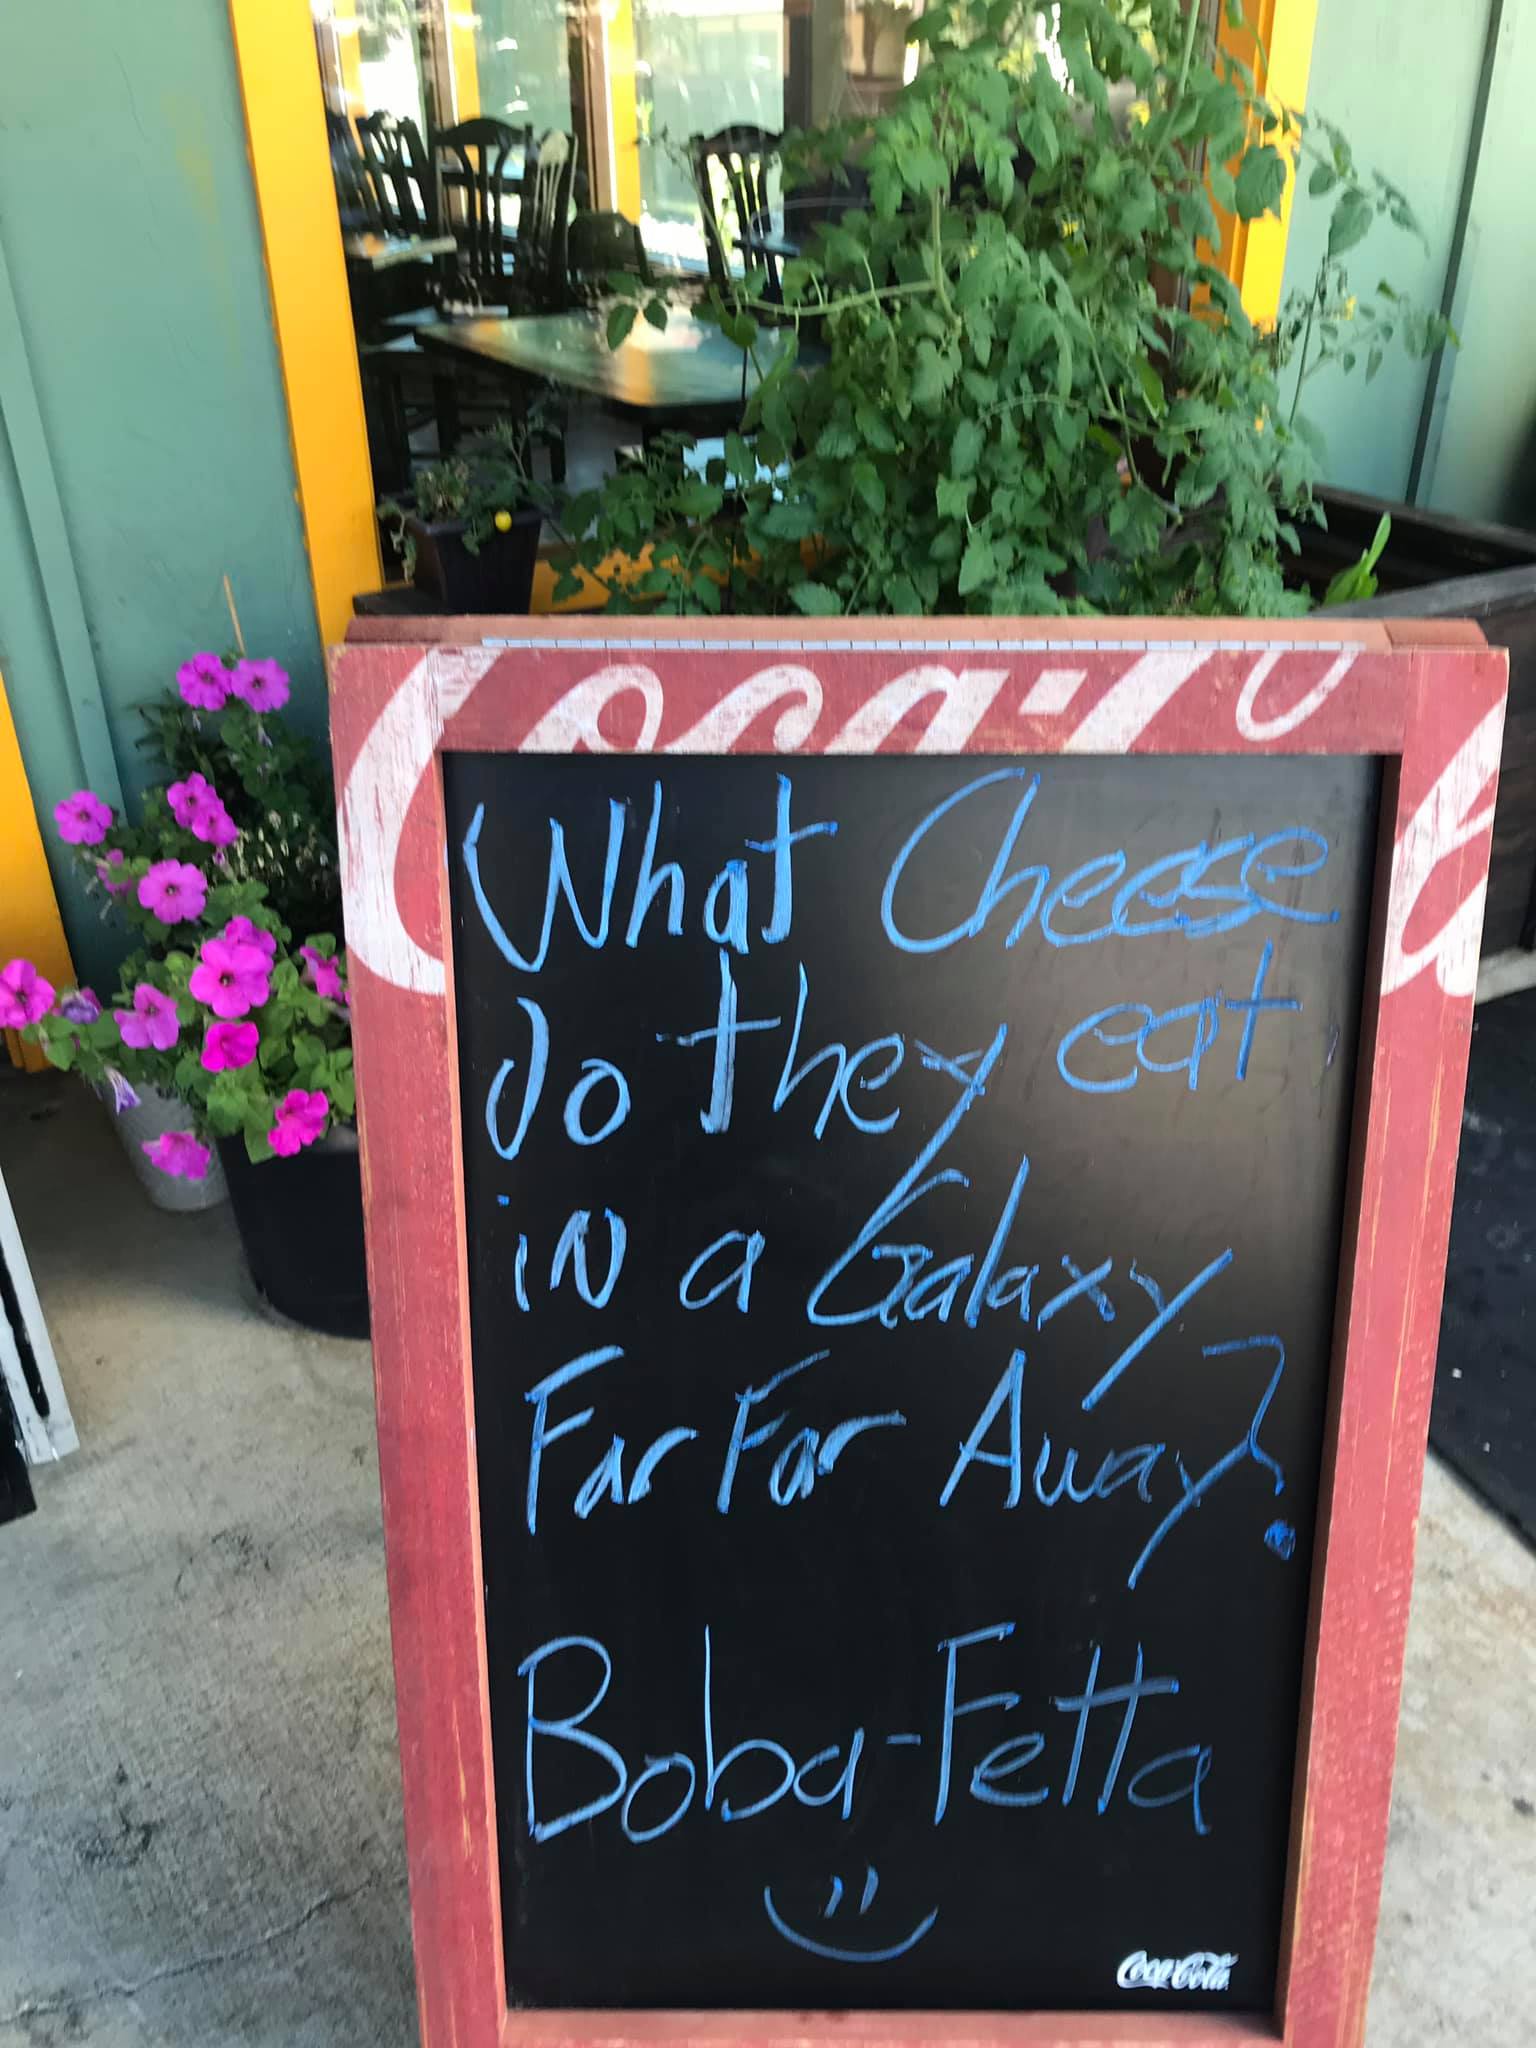 Coca-Co
What Cheese
do they eat
in a Galaxy
Far Far Away?
Boba-Fetta
Coca-Cola